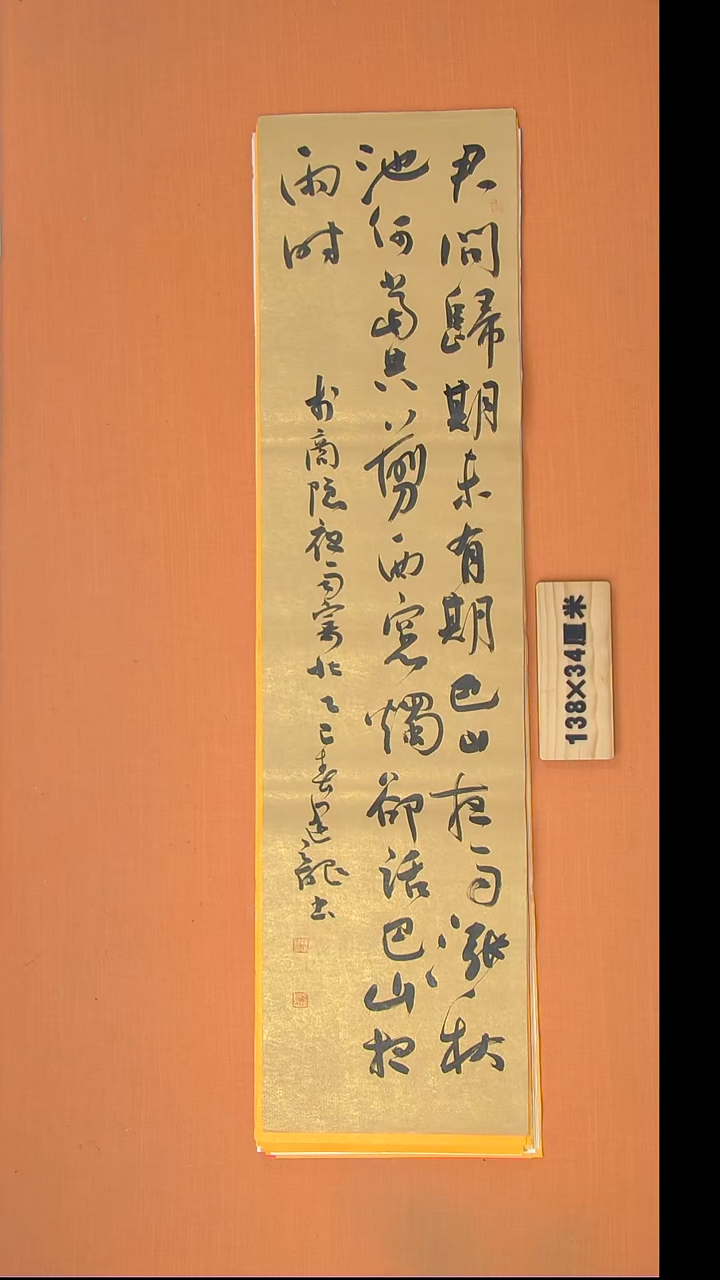 君問歸期未有期巴山夜雨漲秋
池何當共剪西窗燭卻話巴山夜
雨時
李商隐夜雨寄北乙巳春建龍书
138×34厘米